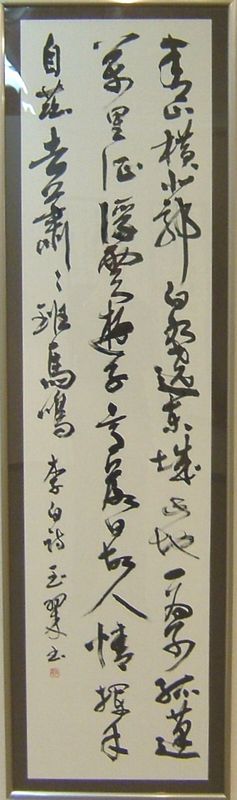 青山橫北郭白水遶東城此地一為別孤蓬
萬里征浮雲遊子意落日故人情揮手
自茲去蕭々班馬鳴 李白詩 玉翠书